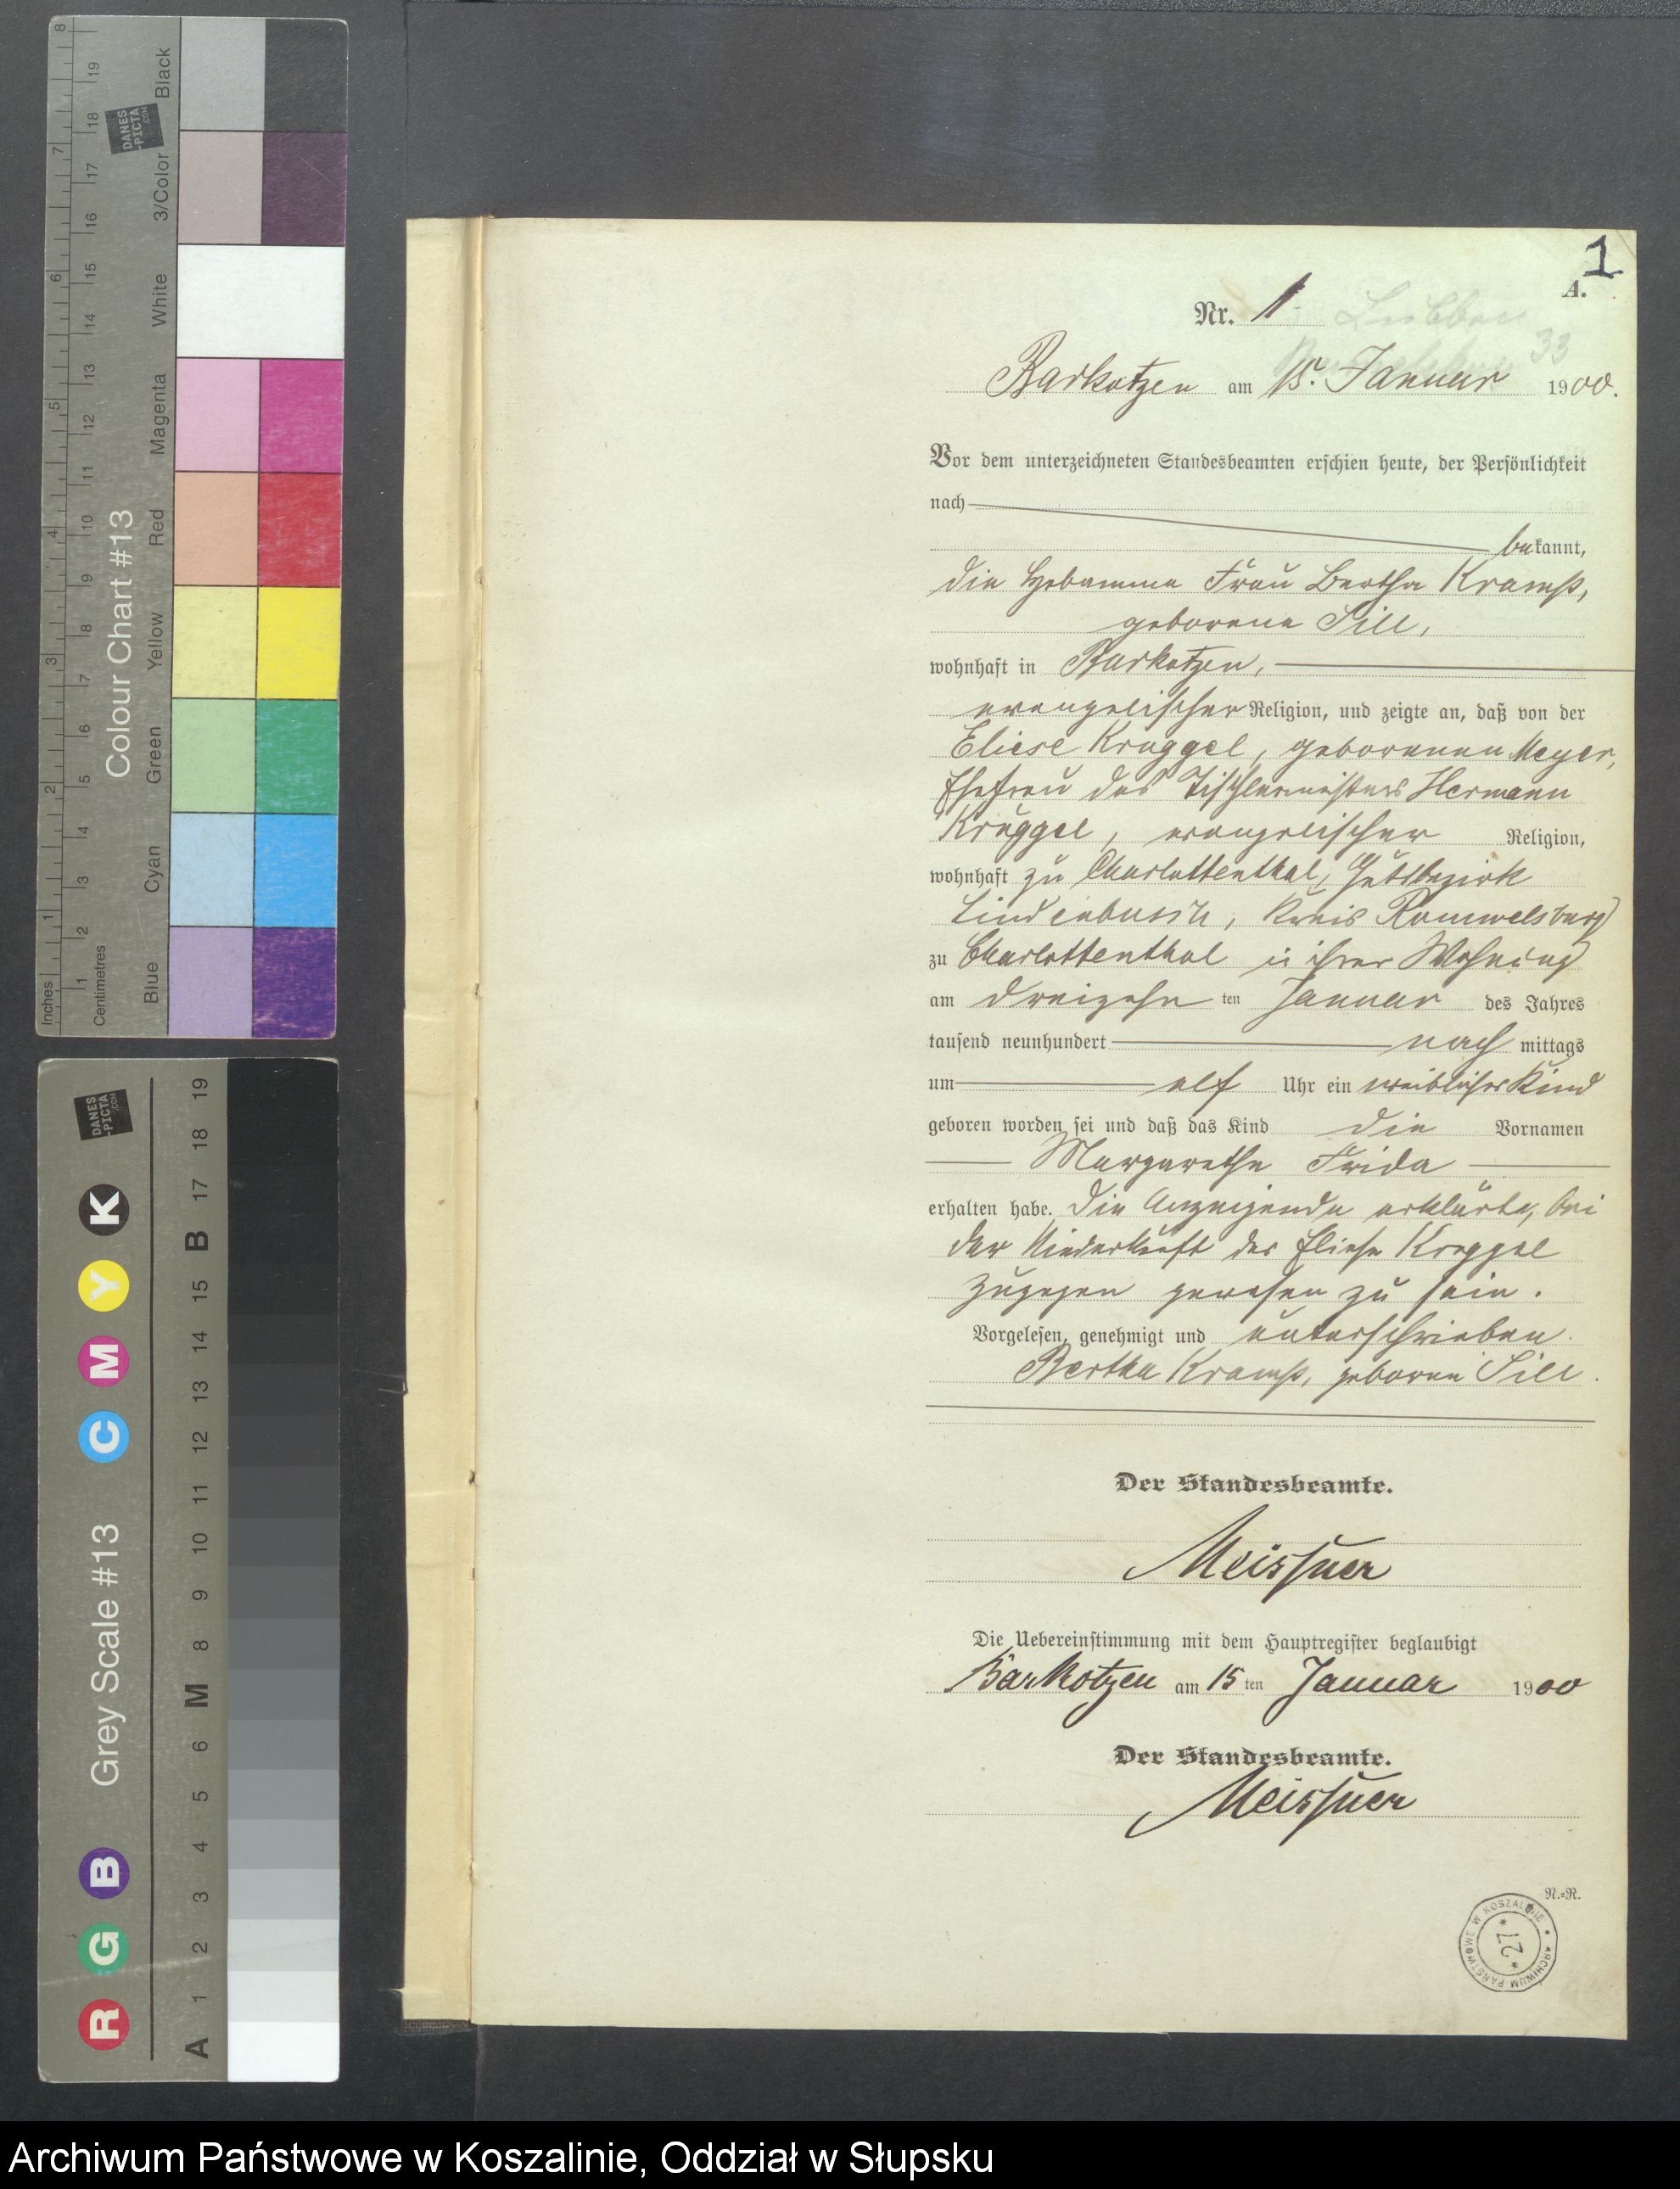 8
7
6
5
4
3
2
1
Inches
19
18
17
16
15
14
13
12
11
10
9
8
7
6
5
4
3
2
1
Centimetres
DANES
-PICTA
.COM
Colour Chart #13
Black
3/Color
White
Magenta
Red
Yellow
Green
Cyan
Blue
DANES
-PICTA
.COM
K
Y
M
C
B
G
R
Grey Scale #13
19
18
17
B
15
14
13
12
11
10
9
8
M
6
5
4
3
2
1
A
1
A.
Nr. 1
33
Barkotzen am 15. Januar 1900.
Vor dem unterzeichneten Standesbeamten erschien heute, der Persönlichkeit
nach
bekannt,
die Hebamme Frau Bertha Kramp,
geborene Sill,
wohnhaft in Barkotzen,
evangelischer Religion, und zeigte an, daß von der
Eliese Kruggel, geborenen Meyer,
Ehefrau des Tischlermeisters Hermann
Kruggel, evangelischer Religion,
wohnhaft zu Charlottenthal, Gutsbezirk
Lindenbusch, Kreis Rummelsburg
zu Charlottenthal in ihrer Wohnung
am dreizehn ten Januar des Jahres
tausend neunhundert nach mittags
um elf Uhr ein weibliches Kind
geboren worden sei und daß das Kind die Vornamen
Margarethe Frida
erhalten habe. Die Anzeigende erklärte, bei
der Niederkunft der Eliese Kruggel
zugegen gewesen zu sein.
Vorgelesen, genehmigt und unterschrieben.
Bertha Kramp, geboren Sill.
Der Standesbeamte.
Meissner
Die Uebereinstimmung mit dem Hauptregister beglaubigt
Barkotzen am 15 ten Januar 1900
Der Standesbeamte.
Meissner
R.=R.
ARCHIWUM PAŃSTWOWE W KOSZALINIE
* 27 *
Archiwum Państwowe w Koszalinie, Oddział w Słupsku